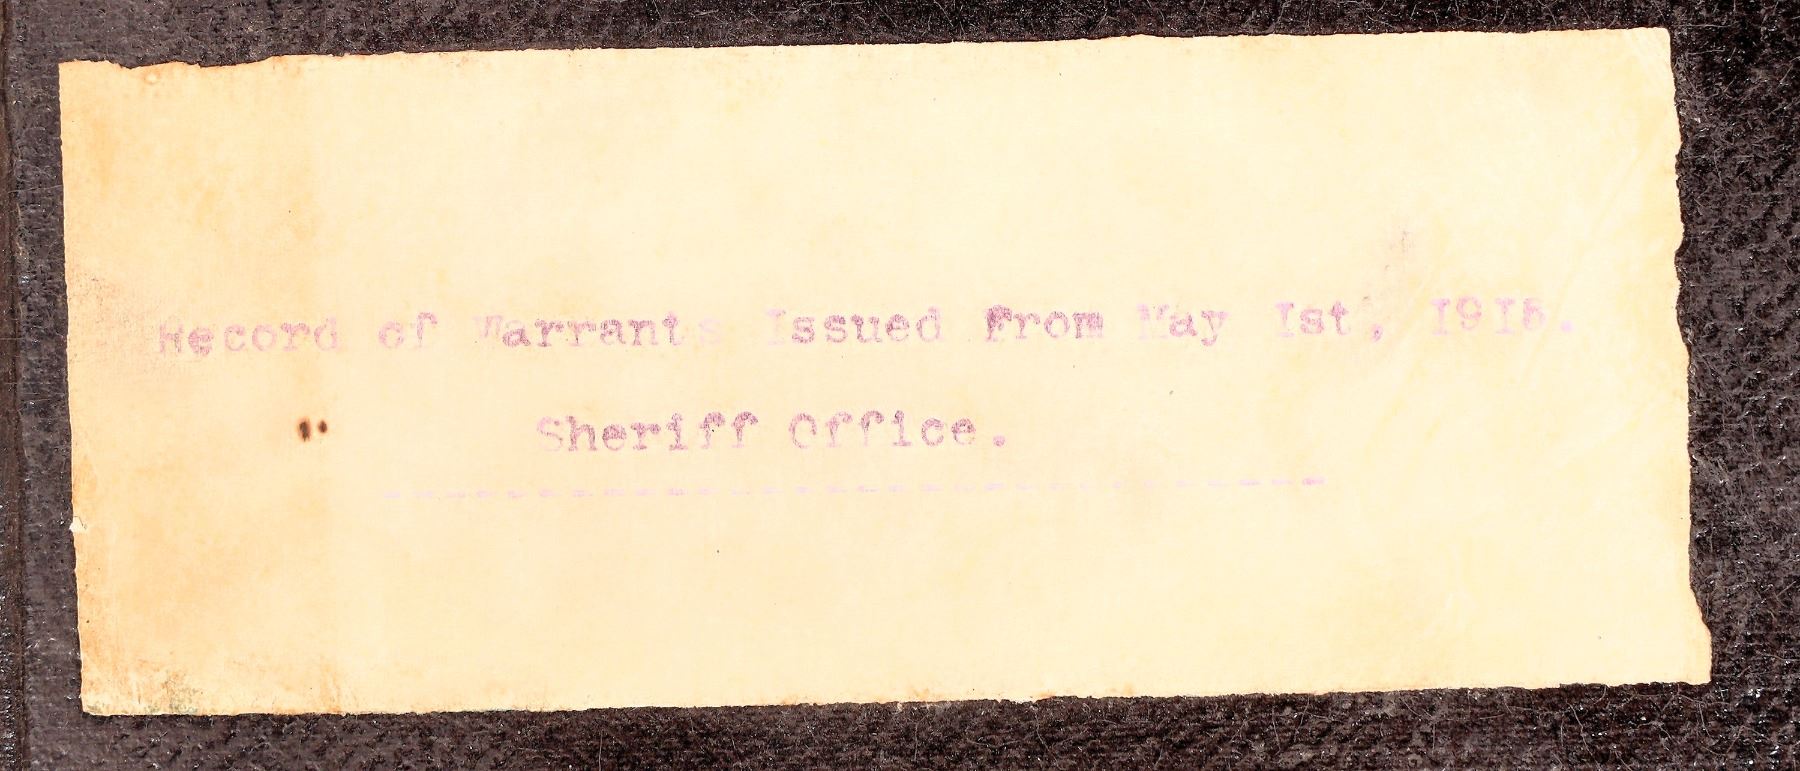 Record of Warrants Issued From May 1st, 1915.
Sheriff Office.
------------------------------